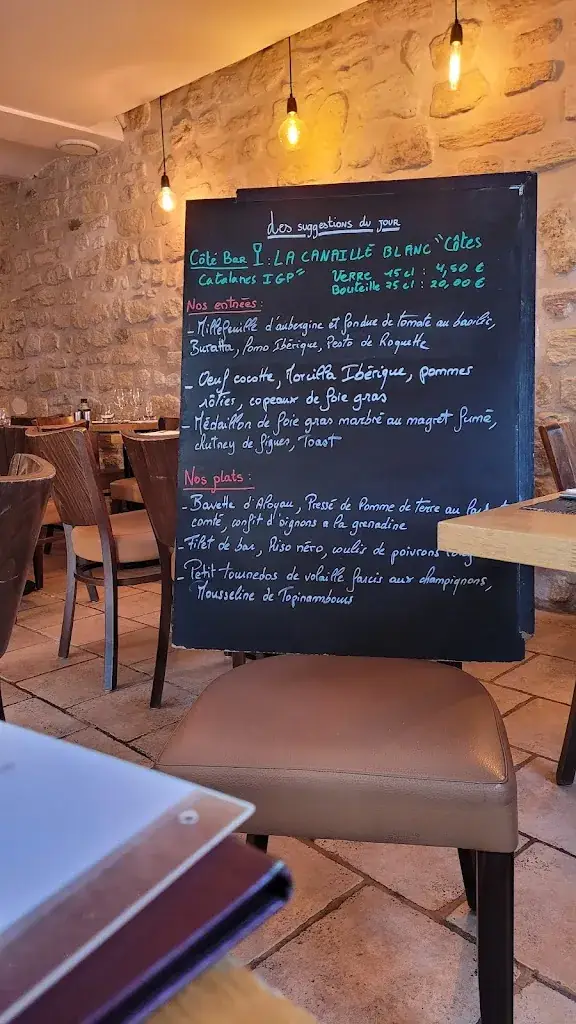 Les suggestions du jour
Côté Bar : LA CANAILLE BLANC "Côtes
Catalanes IGP" Verre 15 cl : 4,50 €
Bouteille 75 cl : 20,00 €
Nos entrées :
- Millefeuille d'aubergine et fondue de tomate au basilic,
Buratta, Pomo Ibérique, Pesto de Roquette
- Oeuf cocotte, Morcilla Ibérique, pommes
rôties, copeaux de foie gras
- Médaillon de foie gras marbré au magret fumé,
chutney de figues, Toast
Nos plats :
- Bavette d'Aloyau, Pressé de Pomme de terre au
comté, confit d'oignons a la grenadine
- Filet de bar, Riso néro, coulis de poivrons
- Petit tournedos de volaille farcis aux champignons,
Mousseline de Topinambours